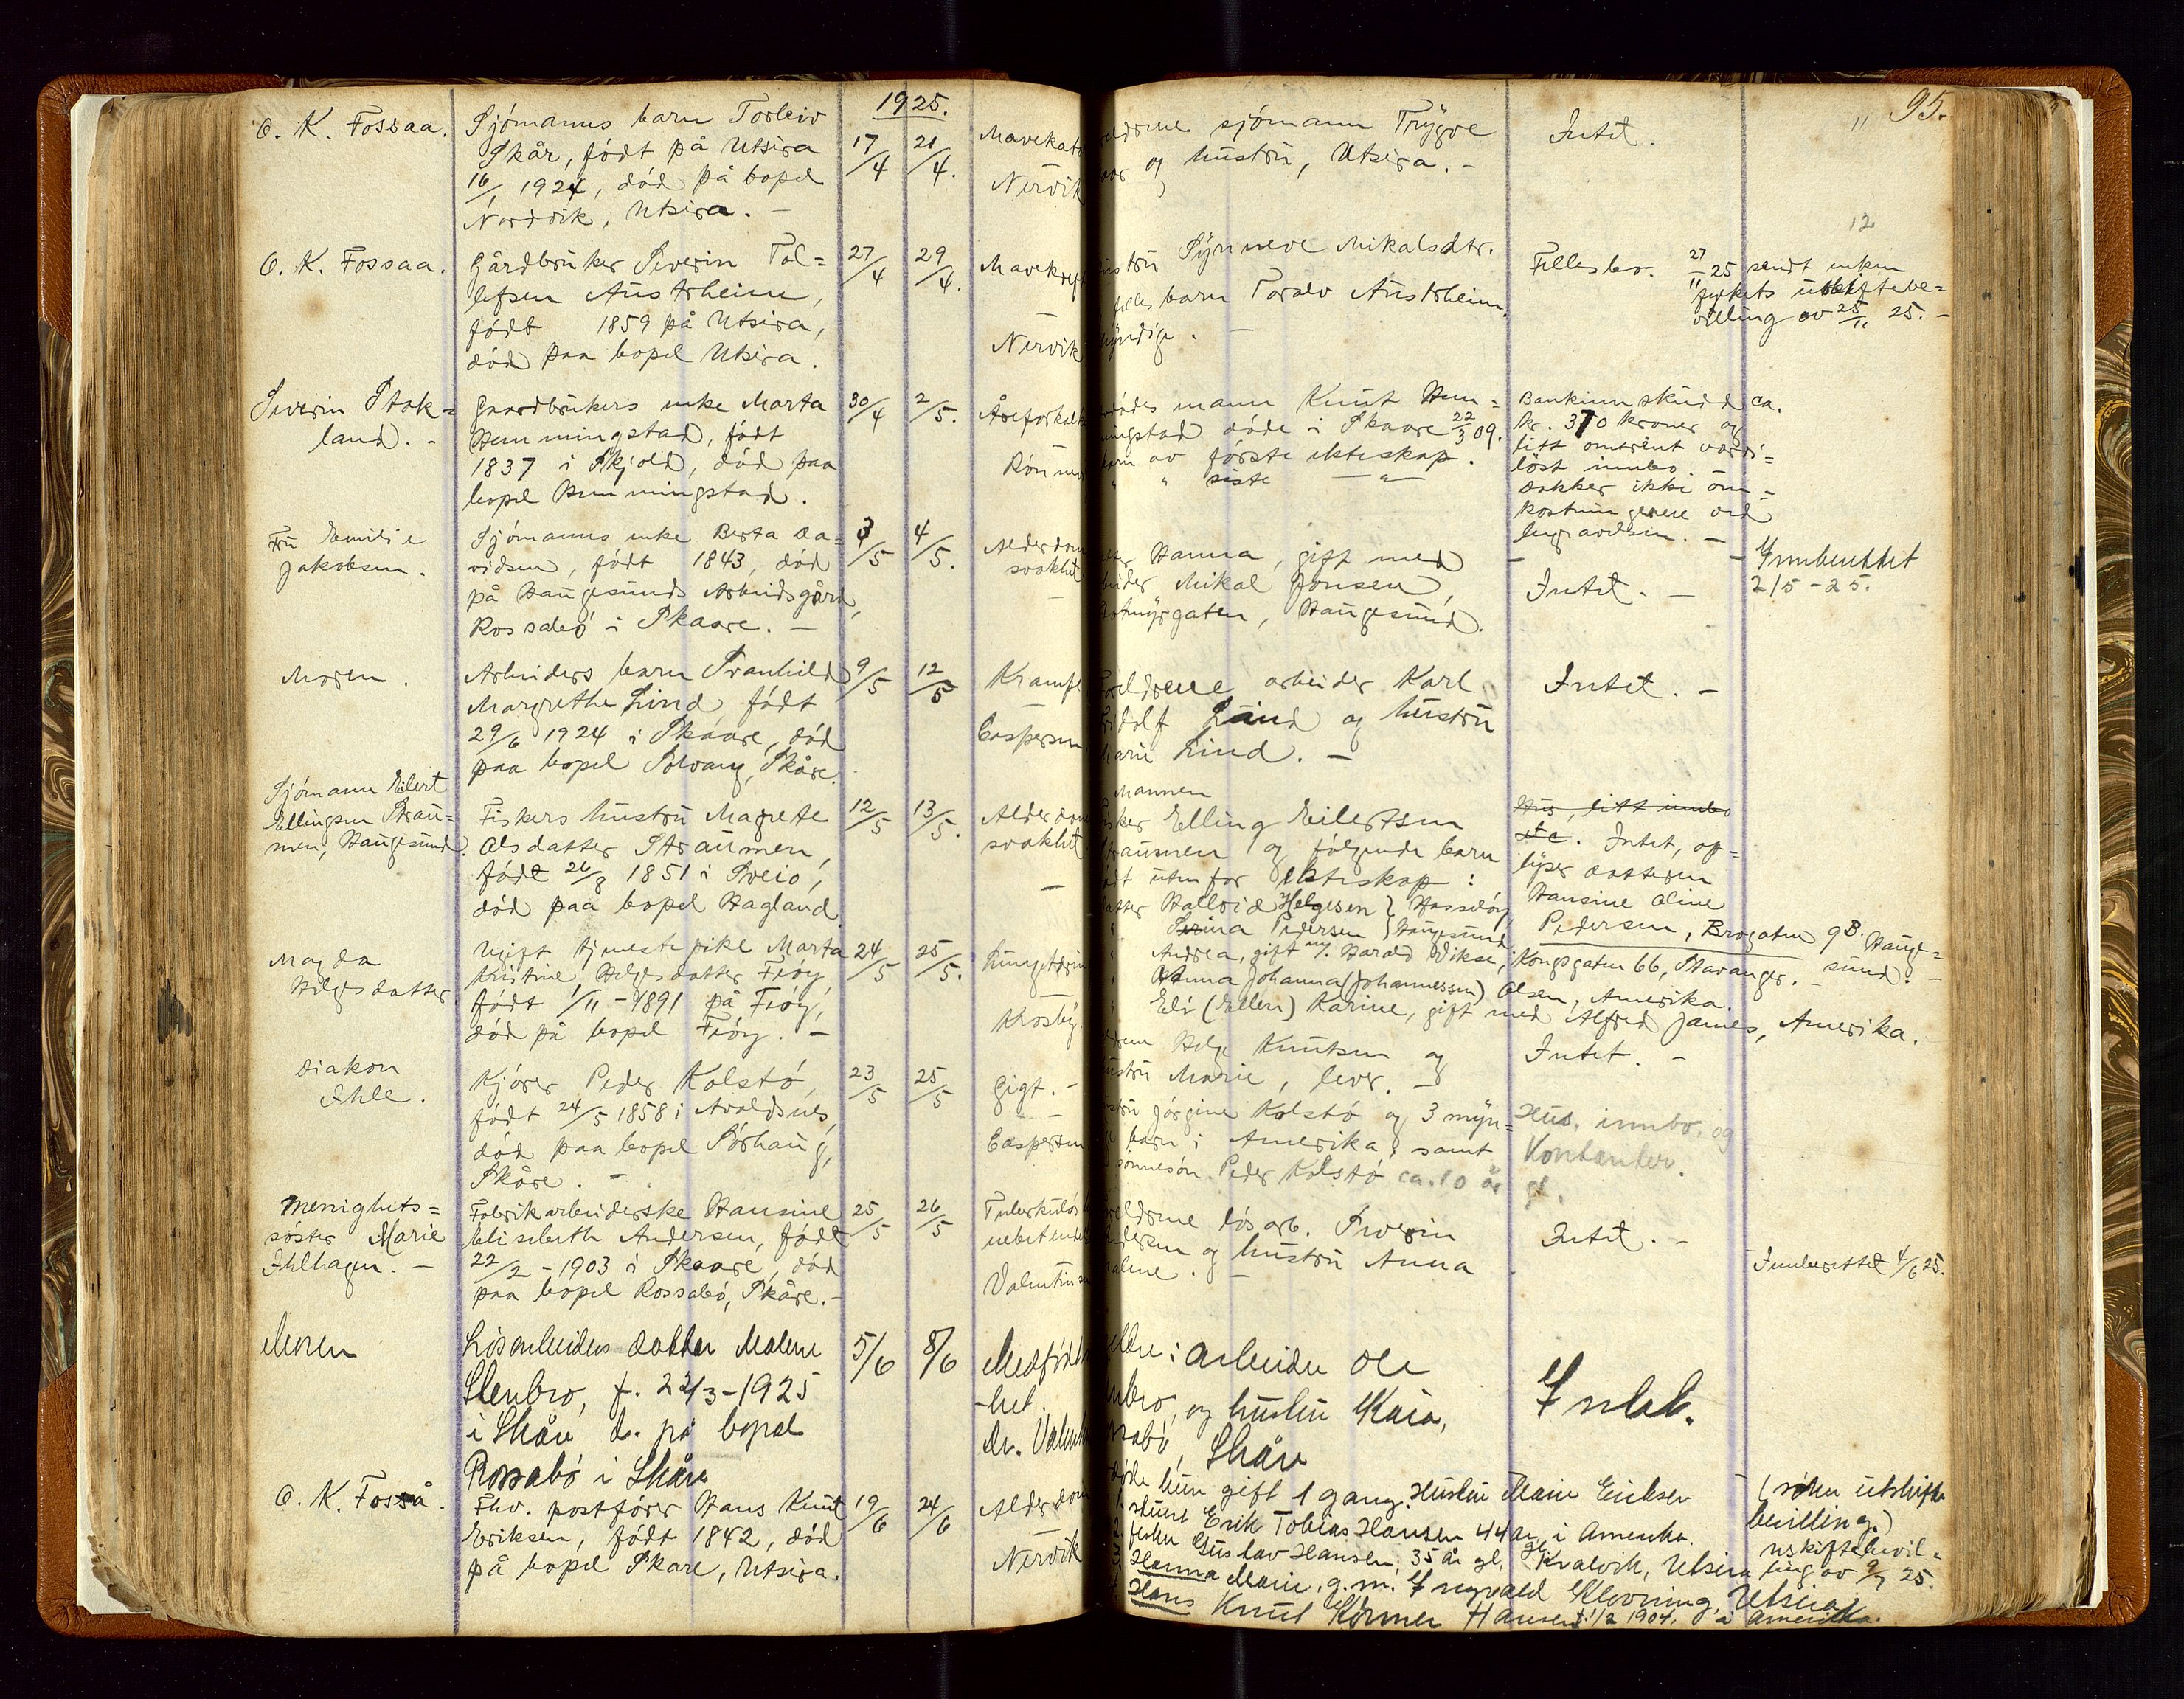 1925.
95.
O. K. Fossaa.
Sjómanns barn Torleiv
Skår, födt på Utsira
16/1 1924, död på bopel
Nordvik, Utsira. -
17/4
21/4.
Nervik
sjómann Trygve
og hustru, Utsira. -
Intet.
11
12
O. K. Fossaa.
Gårdbruker Severin Tol=
lefsen Austrheim,
födt 1859 på Utsira,
död paa bopel Utsira.
27/4
29/4.
Mavekreft
Nervik
Synneve Mikalsdtr.
barn Toralv Austrheim.
myndige.
Fellesbo.
27/11 25 sendt enken
fylkets uskiftebe=
villing av 25/11 25. -
Severin Stok=
land. -
Gaardbrukers enke Marta
Hemmingstad, födt
1837 i Skjold, död paa
bopel Hemmingstad.
30/4
2/5.
Åreforkalk
mann Knut Hem=
mingstad döde i Skaare 22/3 09.
barn av förste ekteskap.
" " siste — " —
Bankinnskudd ca.
kr. 370 kroner og
litt omtrent verdi=
löst innbo. -
Dekker ikke om=
kostningene ved
begravelsen. -
Fru Emilie
Jakobsen.
Sjómanns enke Berta Da=
vidsen, födt 1843, död
på Haugesunds Arbeidsgård,
Rossabö i Skaare. -
3/5
4/5.
Alderdom
svakhet
Hanna, gift med
Mikal Jonsen,
Haugesund.
Intet. -
Innberettet
2/5 - 25.
Moren.
Arbeiders barn Svanhild
Margrethe Lind födt
29/6 1924 i Skaare, död
paa bopel Solvang, Skåre.
9/5
12/5
Krampe
Caspersen
Foreldrene arbeider Karl
Lind og hustru
Marie Lind. -
Intet. -
Sjómann Eilert
Ellingsen Strau=
men, Haugesund.
Fiskers hustru Magrete
Olsdatter Straumen,
födt 26/8 1851 i Sveio,
död paa bopel Hagland.
12/5
13/5.
Alderdom
svakhet
Mannen
fisker Elling Eilertsen
Straumen og fölgende barn
födt utenfor ekteskap:
datter Hallvid Helgesen } Hasseløy
" Serina Pedersen } Haugesund
" Andrea, gift m/. Harald Vikse, Kongsgaten 66, Stavanger. -
" Anna Johanna (Johannessen) Olsen, Amerika.
" Eli (Ellen) Karine, gift med Alfred James, Amerika.
Hus, litt innbo
etc. Intet, op=
lyser datteren
Hansine Oline
Pedersen, Brogaten 9B. Hauge=
sund. -
Magda
Helgesdatter.
Ugift tjenestepike Marta
Kristine Helgesdatter Feöy
födt 1/11 - 1891 på Feöy,
död på bopel Feöy. -
24/5
25/5.
Krosby.
Helge Knutsen og
hustru Marie, lever. -
Intet. -
Diakon
Ihle.
Kjörer Peder Kolstö,
födt 24/5 1858 i Avaldsnes,
död paa bopel Sörhaug,
Skåre. -
23/5
25/5
Gigt. -
Caspersen
hustru Jörgine Kolstö og 3 myn=
dige barn i Amerika, samt
sönnesön Peder Kolstö ca. 10 år gl.
Hus, innbo, og
Kontanter.
Menighets=
söster Marie
Ihlhagen. -
Fabrikarbeiderske Hansine
Elisabeth Andersen, födt
22/2 - 1903 i Skaare, död
paa bopel Rossabö, Skåre. -
25/5
26/5
Valentinsen
Foreldrene lösarb. Severin
Andersen og hustru Anna
Malene. -
Intet. -
Innberettet 4/6 25.
Moren
Lösarbeiders datter Malene
Stenbro, f. 22/3 - 1925
i Skåre d. på bopel
Rossabö i Skåre
5/6
8/6
Medfödt
-het.
Dr. Valent
arbeider Ole
Stenbro, og hustru Kaia,
Rossabö, Skåre
Intet.
O. K. Fosså.
Fhv. postförer Hans Knut
Eriksen, födt 1842, död
på bopel Skare, Utsira.
19/6
24/6
Alderdom
Nervik
kun gift 1 gang. Hustru Marie Eriksen
Erik Tobias Hansen 44 år i Amerika.
fisker Gustav Hansen, 35 år gl. Kvalvik, Utsira
Hanna Marie, g.m. Ingvald Klovning, Utsira
Hans Knut Körner Hansen f. 1/2 1904, i Amerika.
(söker uskifte
bevilling.)
Uskiftebevil=
ling av 9/7 25.